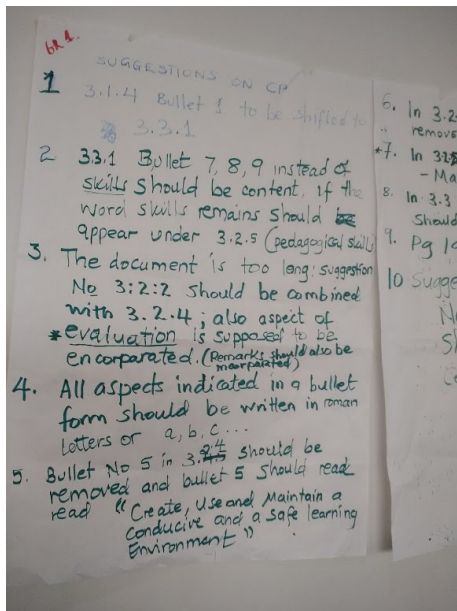 GR 1.
SUGGESTIONS ON CP
1 3.1.4 Bullet 1 to be shifted to
3.3.1
2 3.3.1 Bullet 7, 8, 9 instead of
skills should be content, if the
word skills remains should be
appear under 3.2.5 (pedagogical skills
3. The document is too long: suggestion
No 3:2:2 should be combined
with 3.2.4; also aspect of
* evaluation is supposed to be
encorparated. (Remarks should also be
incorparated)
4. All aspects indicated in a bullet
form should be written in roman
letters or a, b, c ...
5. Bullet No 5 in 3.2.4 should be
removed and bullet 5 should read
read "Create, Use and Maintain a
conducive and a safe learning
Environment"
6. In 3.2
remove
*7. In 3.2
- Ma
8. In 3.3
Should
9. Pg
10 Sugge